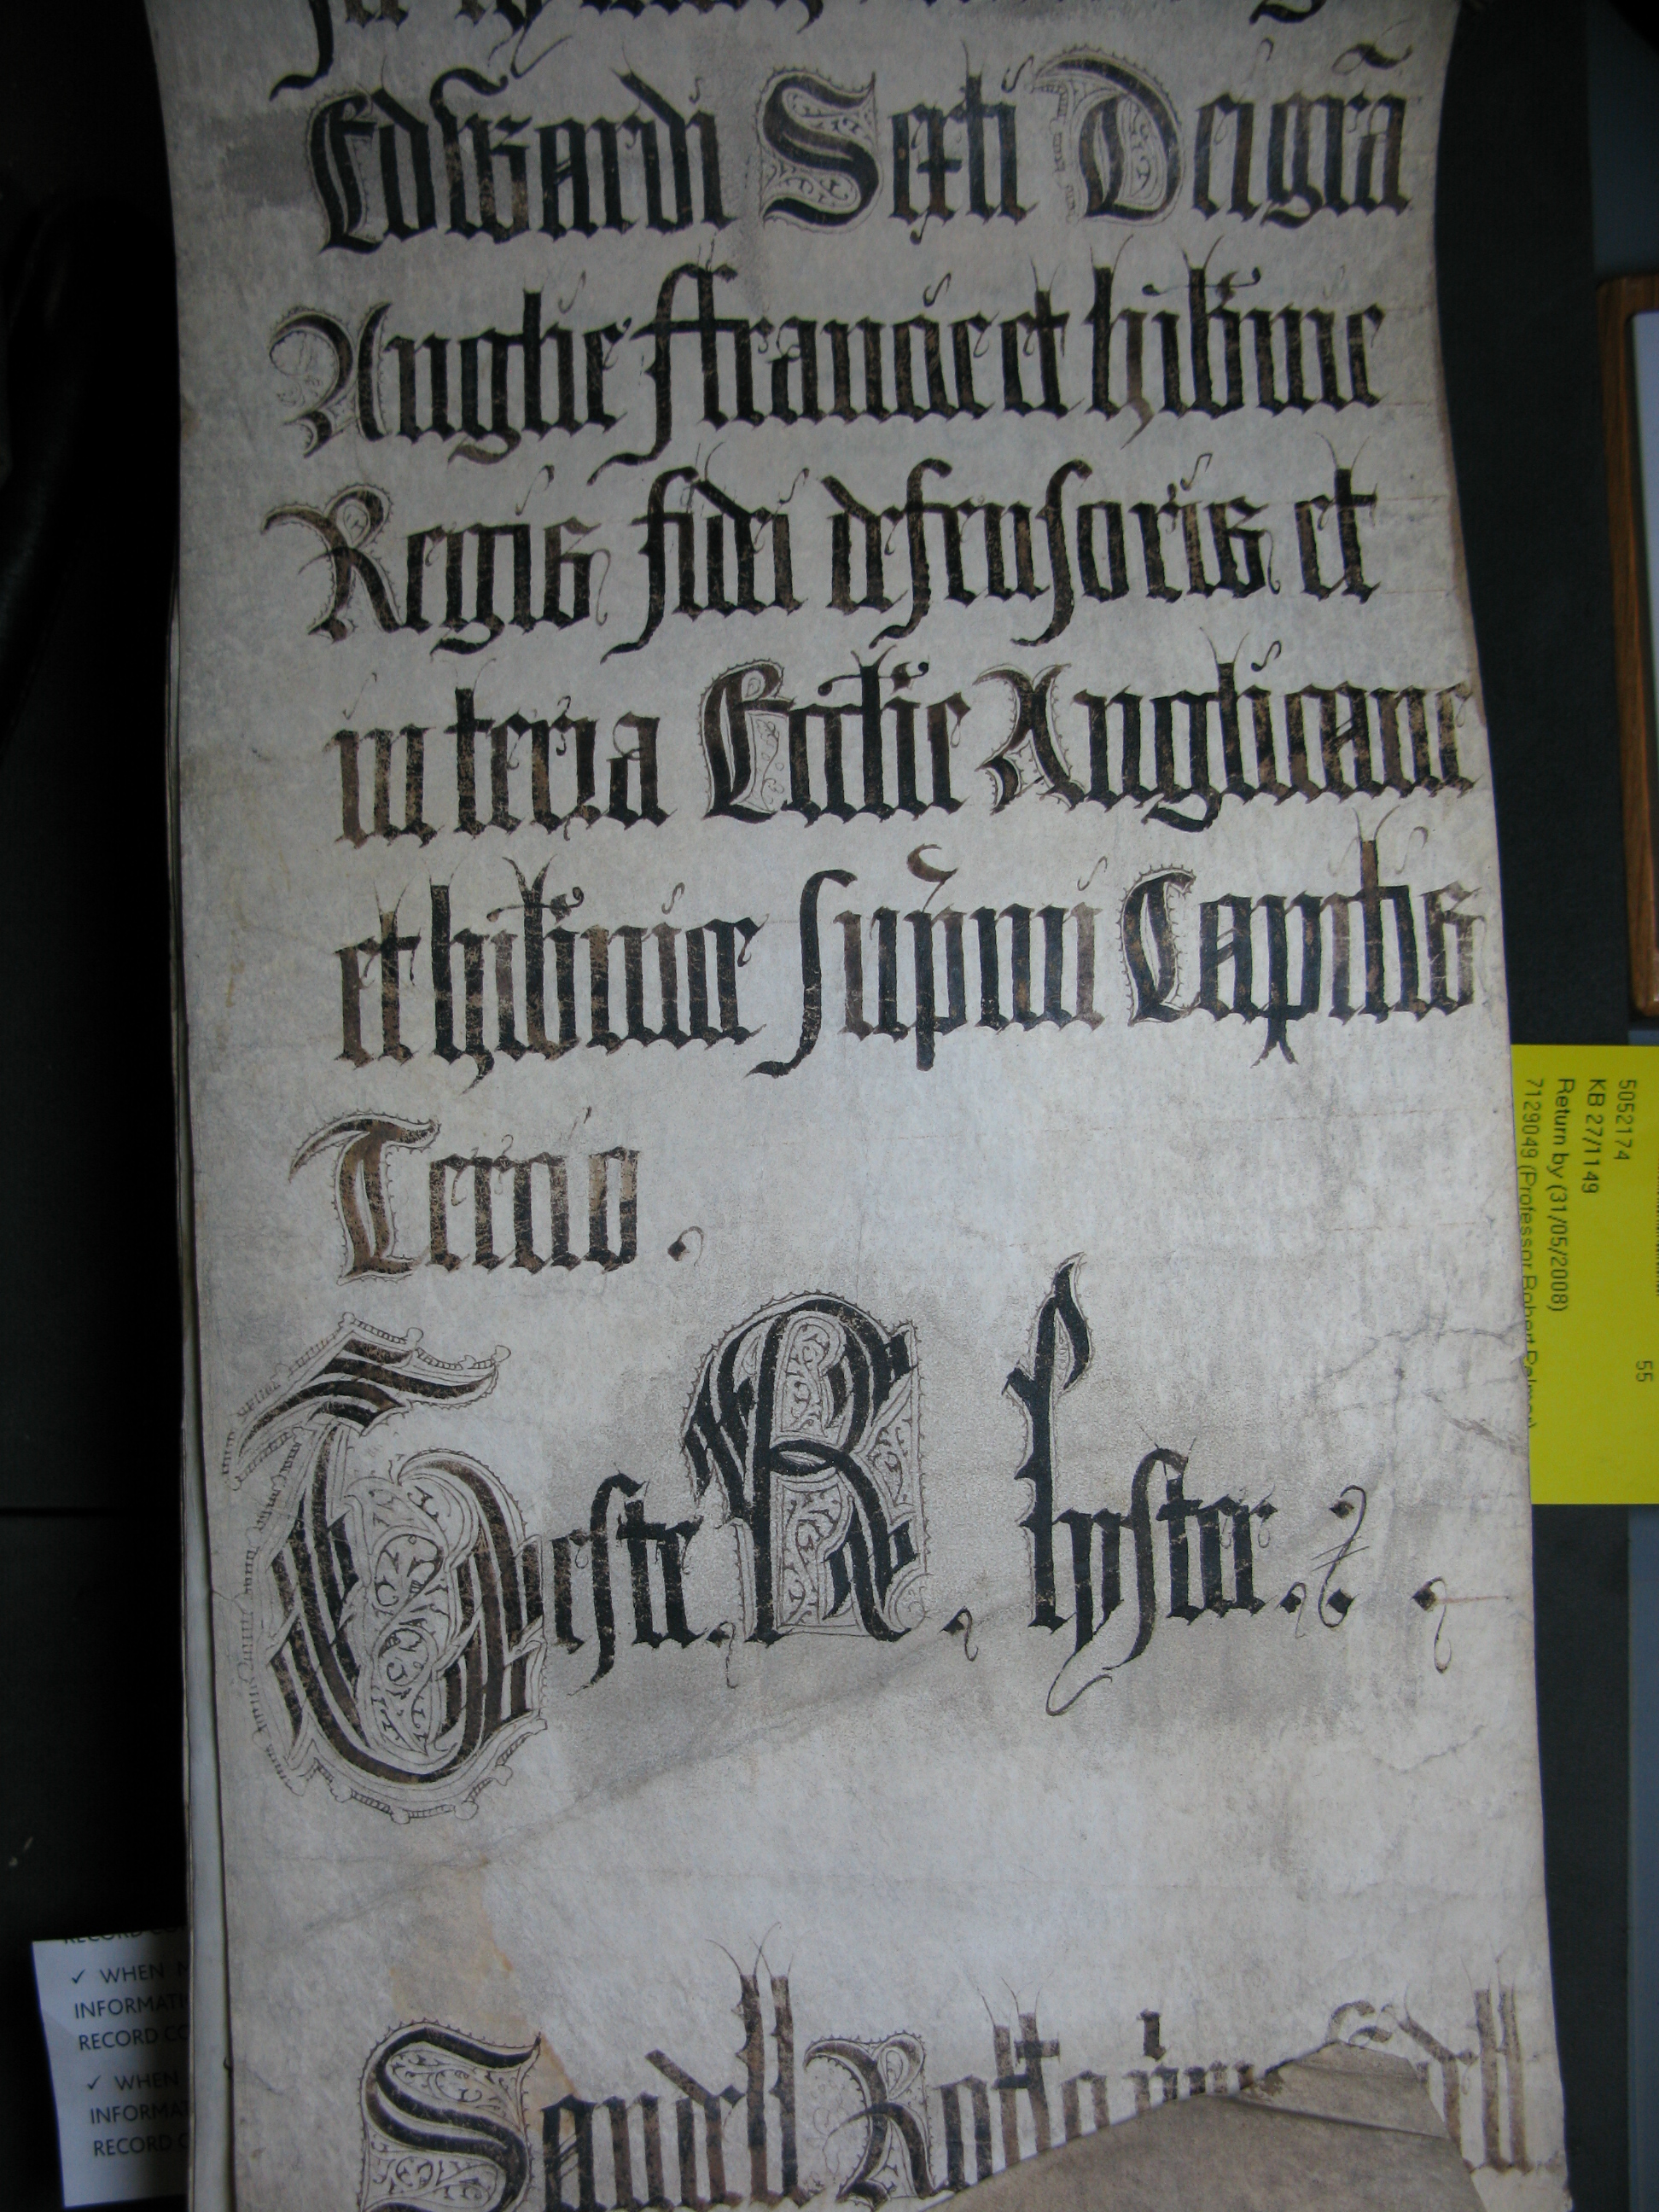 Edwardi Sexti Dei gr̄a
Anglie ffrancie et hib̄nie
Regis fidei defensoris et
in terra Eccl̄ie Anglicane
et hib̄nice sup̄mi Capitis
Tercio .
Teste . R . lyster . .
Sandell Rotto
5052174
KB 27/1149
Return by (31/05/2008)
7129049 (Professor Robert Palmer)
55
✓ WHEN
INFORMATI
RECORD CO
✓ WHEN
INFORMAT
RECORD C